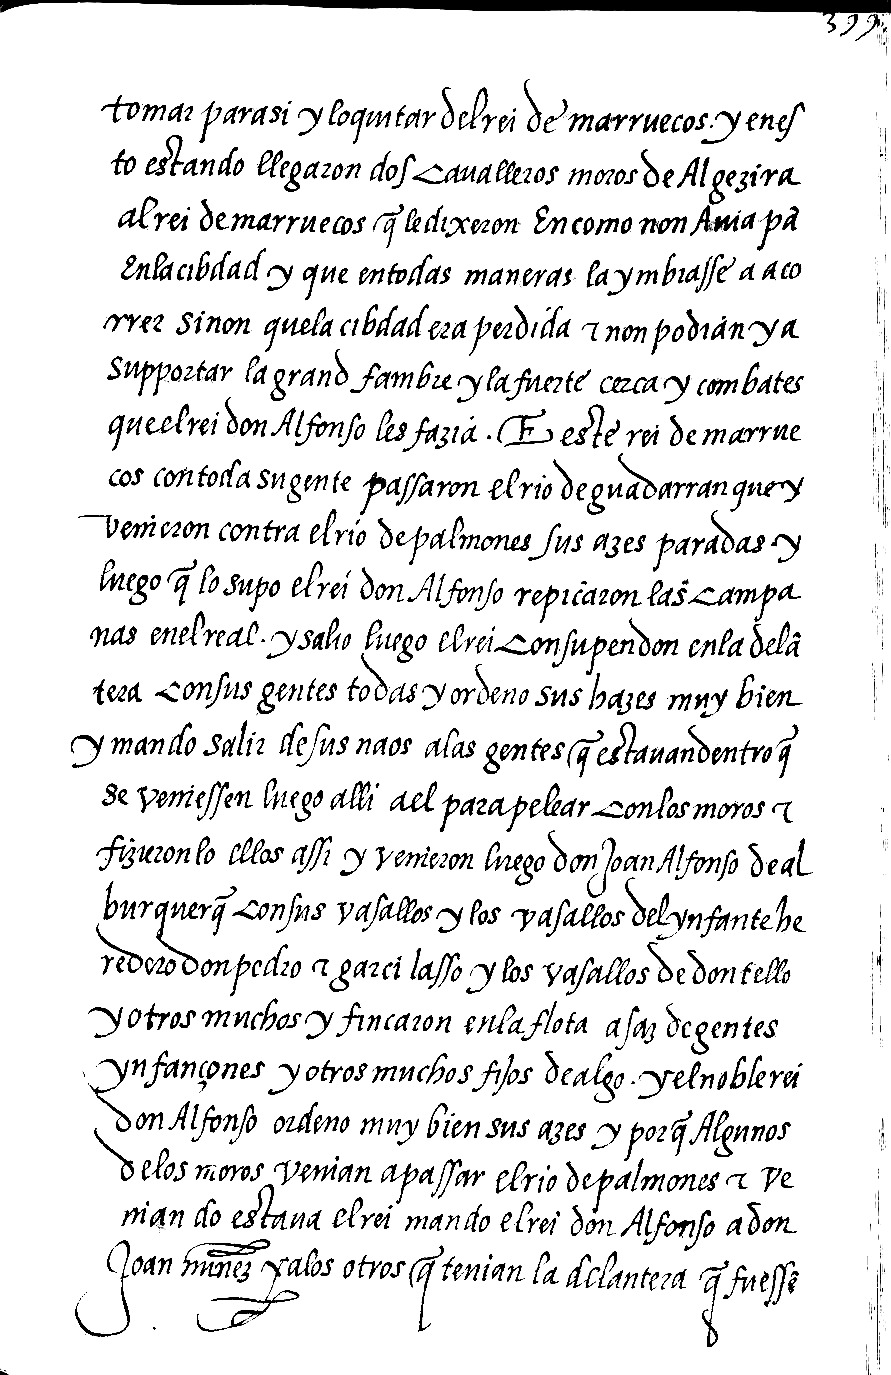 399
tomar parasi y loquitar delrei de marruecos. y enes
to estando llegaron dos cavalleros moros de Algezira
alrei demarruecos q̃ ledixeron En como non Avia pã
Enlacibdad y que entodas maneras la ymbiasse a aco
rrer sinon quela cibdad era perdida ꞇ non podian ya
supportar la grand fambre y la fuerte cerca y combates
que el rei don Alfonso les fazia. E este rei de marrue
cos con toda su gente passaron el rio de guadarranque y
venieron contra el rio de palmones sus azes paradas y
luego q̃ lo supo el rei don Alfonso repicaron las campa
nas enel real. y salio luego el rei con su pendon enla delã
tera con sus gentes todas y ordeno sus hazes muy bien
y mando salir de sus naos alas gentes q̃ estavan dentro q̃
se veniessen luego alli a el para pelear con los moros ꞇ
fizieronlo ellos assi y venieron luego don Joan Alfonso de al
burquerq̃ con sus vasallos y los vasallos del ynfante he
redero don pedro ꞇ garci lasso y los vasallos de don tello
y otros muchos y fincaron enla flota asaz de gentes
ynfançones y otros muchos fijos dealgo. y el noble rei
don Alfonso ordeno muy bien sus azes y porq̃ Algunos
delos moros venian a passar el rio de palmones ꞇ ve
nian do estava el rei mando el rei don Alfonso a don
Joan nuñez y alos otros q̃ tenian la delantera q̃ fuessẽ